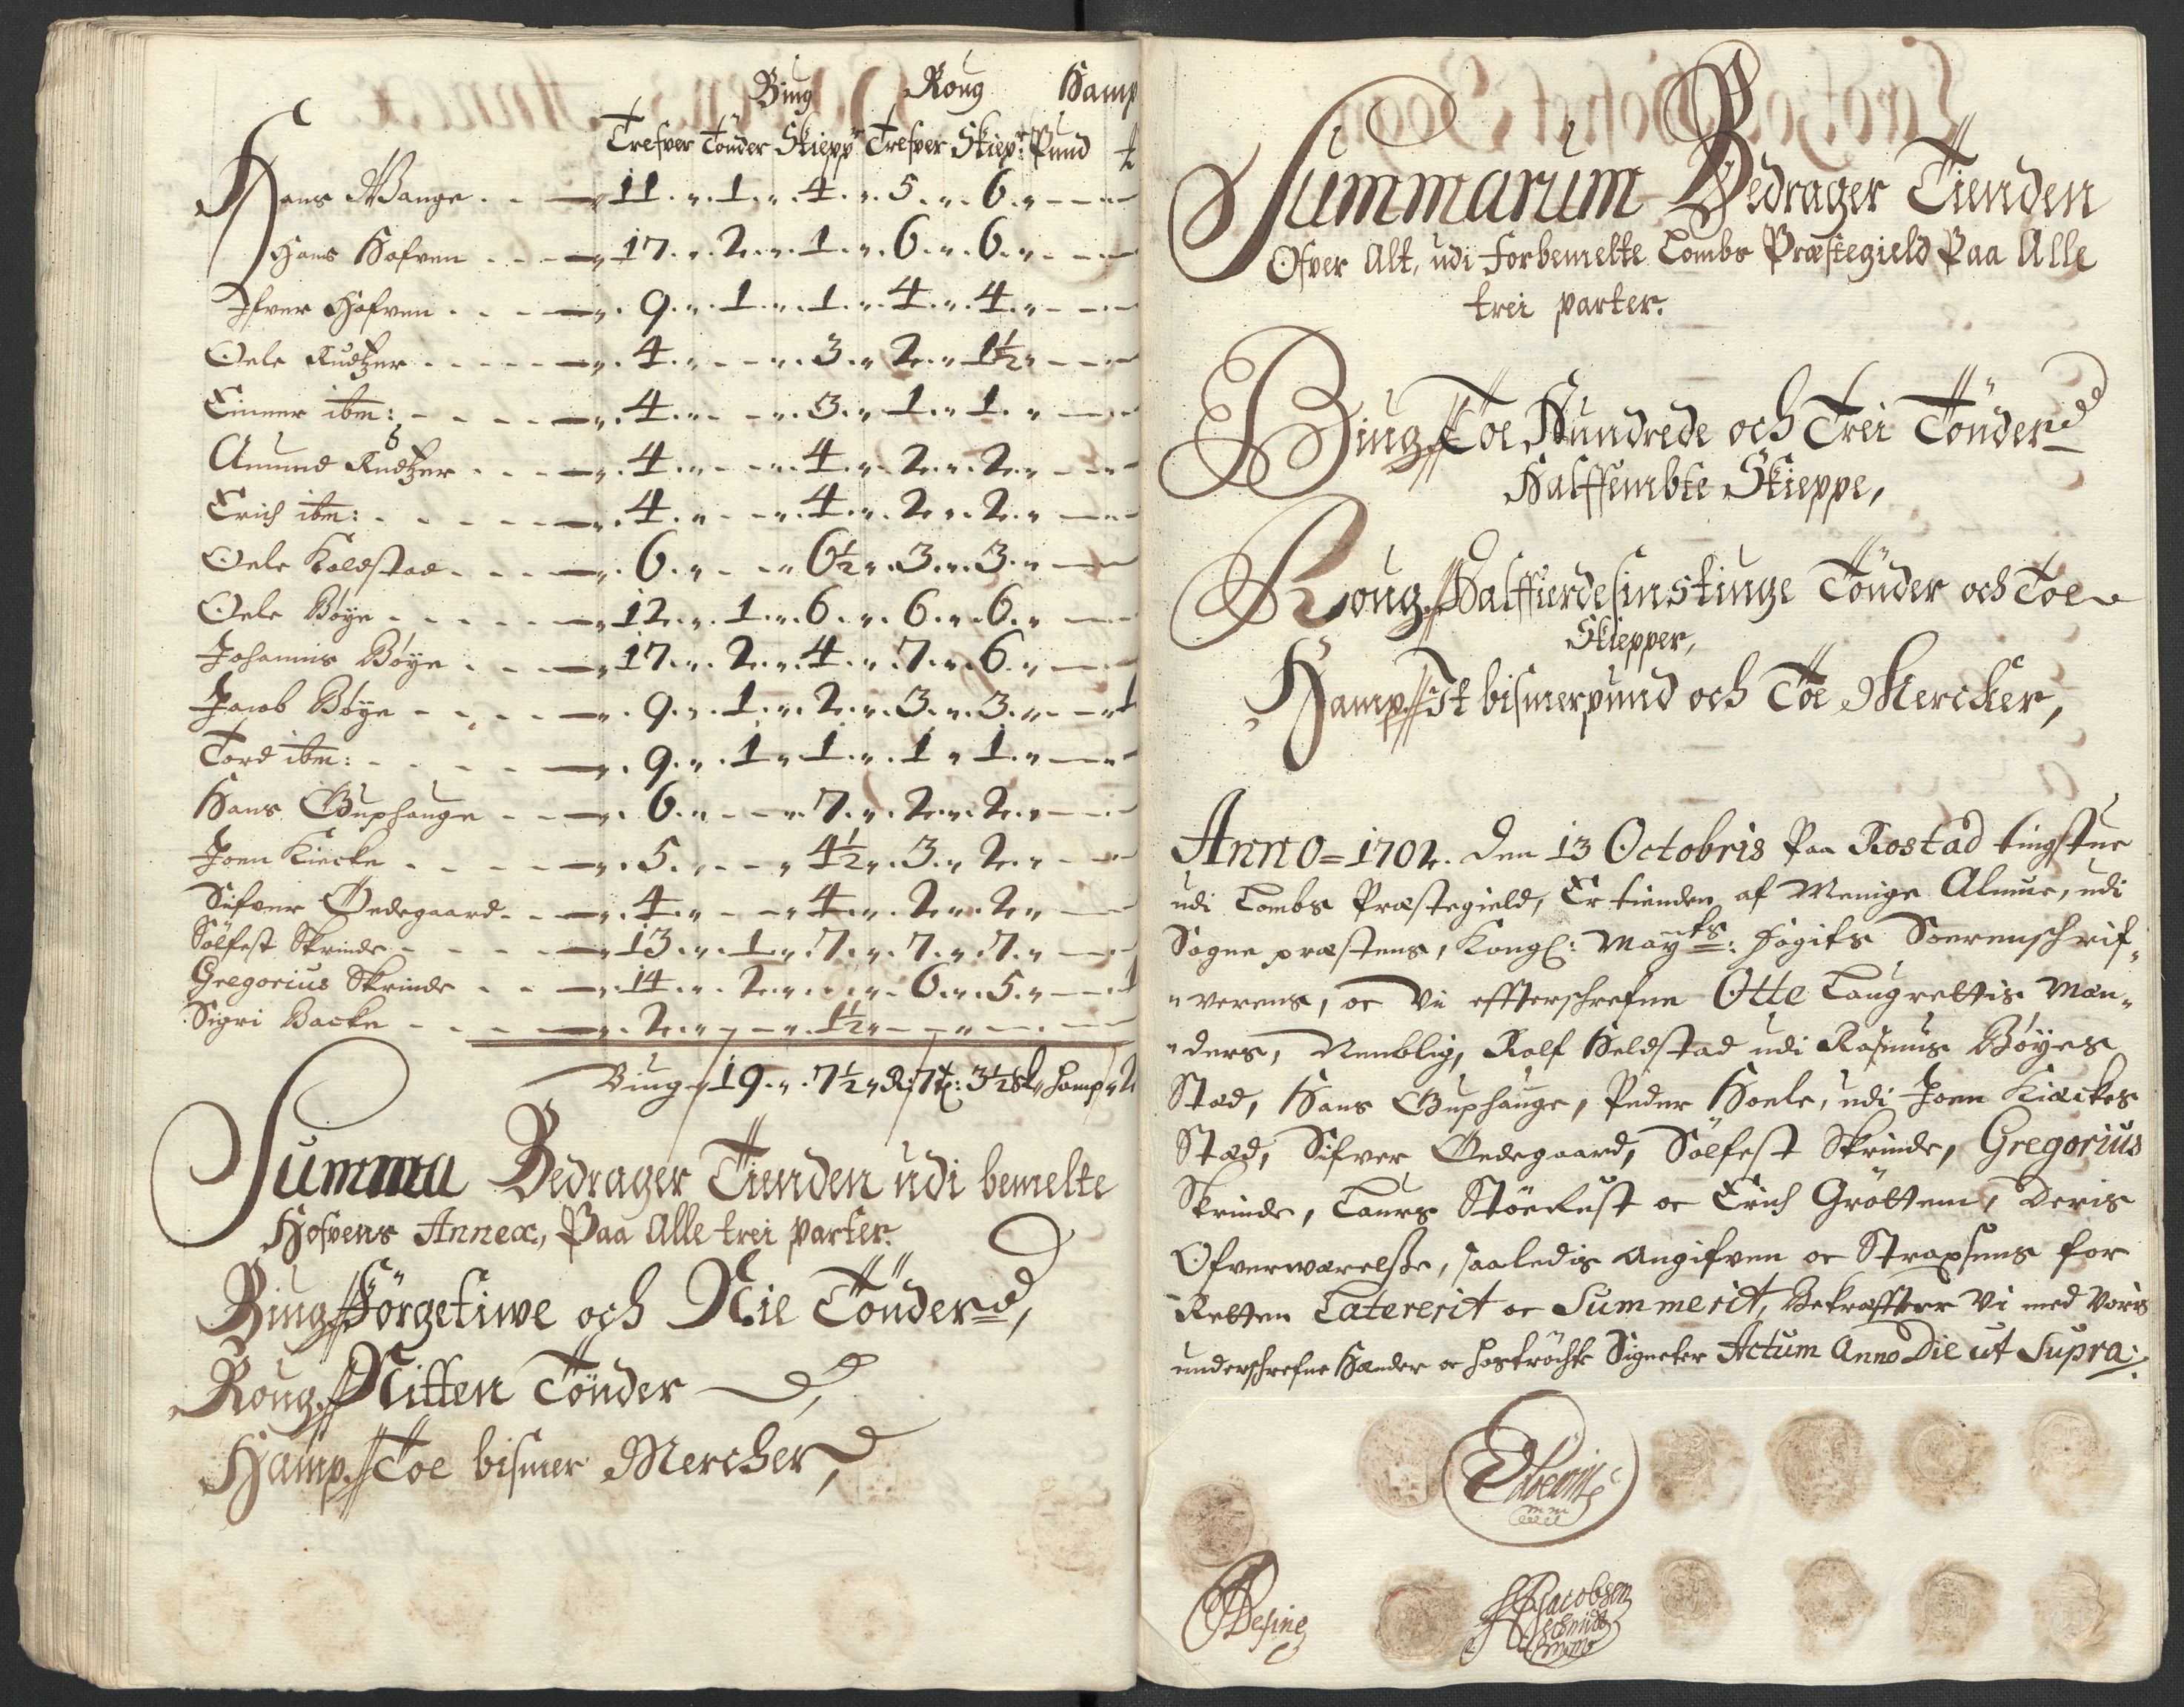 Biug Roug Hamp
Trefver Tönder Skiepp Trefver Skiep: Pund
Hans Wange . . — 11 . 1 . 4 . 5 . 6 . —
Hans Hofven . . — 17 . 2 . 1 . 6 . 6 . —
Ifver Hofven . . — 9 . 1 . 1 . 4 . 4 . —
Oele . . . — 4 . — 3 . 2 . 1½ —
Einner ibm: . . — 4 . — 3 . 1 . 1 . —
Amund . . . — 4 . — 4 . 2 . 2 . —
Erich ibm: . . — 4 . — 4 . 2 . 2 . —
Oele Koldstad . . — 6 . — 6½ . 3 . 3 . —
Oele Böye . . — 12 . 1 . 6 . 6 . 6 . —
Johannis Böye . . — 17 . 2 . 4 . 7 . 6 . —
Jacob Böye . . — 9 . 1 . 2 . 3 . 3 . — 1
Tord ibm: . . — 9 . 1 . 1 . 1 . 1 . —
Hans Guphauge . . — 6 . — 7 . 2 . 2 . —
Joen Kiecke . . — 5 . — 4½ . 3 . 2 . —
Sifver Ödegaard . . — 4 . — 4 . 2 . 2 . —
Sölfest Skrinde . . — 13 . 1 . 7 . 7 . 7 . —
Gregorius Skrinde . . — 14 . 2 . . 6 . 5 . — 1
Sigri Backe . . — 2 . — 1½ — —
Biug 19 . 7½ R: 7 t: 3½ sk hamp 2
Summa Bedrager Tienden udi bemelte
Hofvens Annex, Paa Alle trei parter.
Biug Förgetiwe och Nie Tönder,
Roug Nitten Tönder
Hamp Toe bismer Mercher
Summarum Bedrager Tienden
Ofver Alt, udi Forbemelte Lombs Præstegield Paa Alle
trei parter.
Biug Toe Hundrede och Trei Tönder
Halffembte Skieppe,
Roug Halffierdesinstiuge Tönder och Toe
Skiepper,
Hamp It bismerpund och Toe Mercker,
Anno = 1702. Den 13 Octobris Paa Rostad tingstue
udi Lombs Præstegield, Er tienden af Menige Almue, udi
Sogne præstens, Kongl: Maytts: fogits Sorenschrif-
verens, oc Vi effterschrefne Otte Laugrettis Mæn-
ders, Nemblig, Rolf Heldstad udi Rasmus Böyes
Stæd, Hans Guphauge, Peder Hoele, udi Joen Kiækes
Stæd, Sifver Ödegaard, Sölfest Skrinde, Gregorius
Skrinde, Laurs Stöekust oc Erich Gröttem, Deris
Ofverwærelse, saaledis angifven oc Strapsens for
Retten Latererit oc Summerit, Bekræffter Vi med Voris
underschrefne Hænder oc hoströchte Signeter Actum Anno Die ut Supra.
Jacobsen